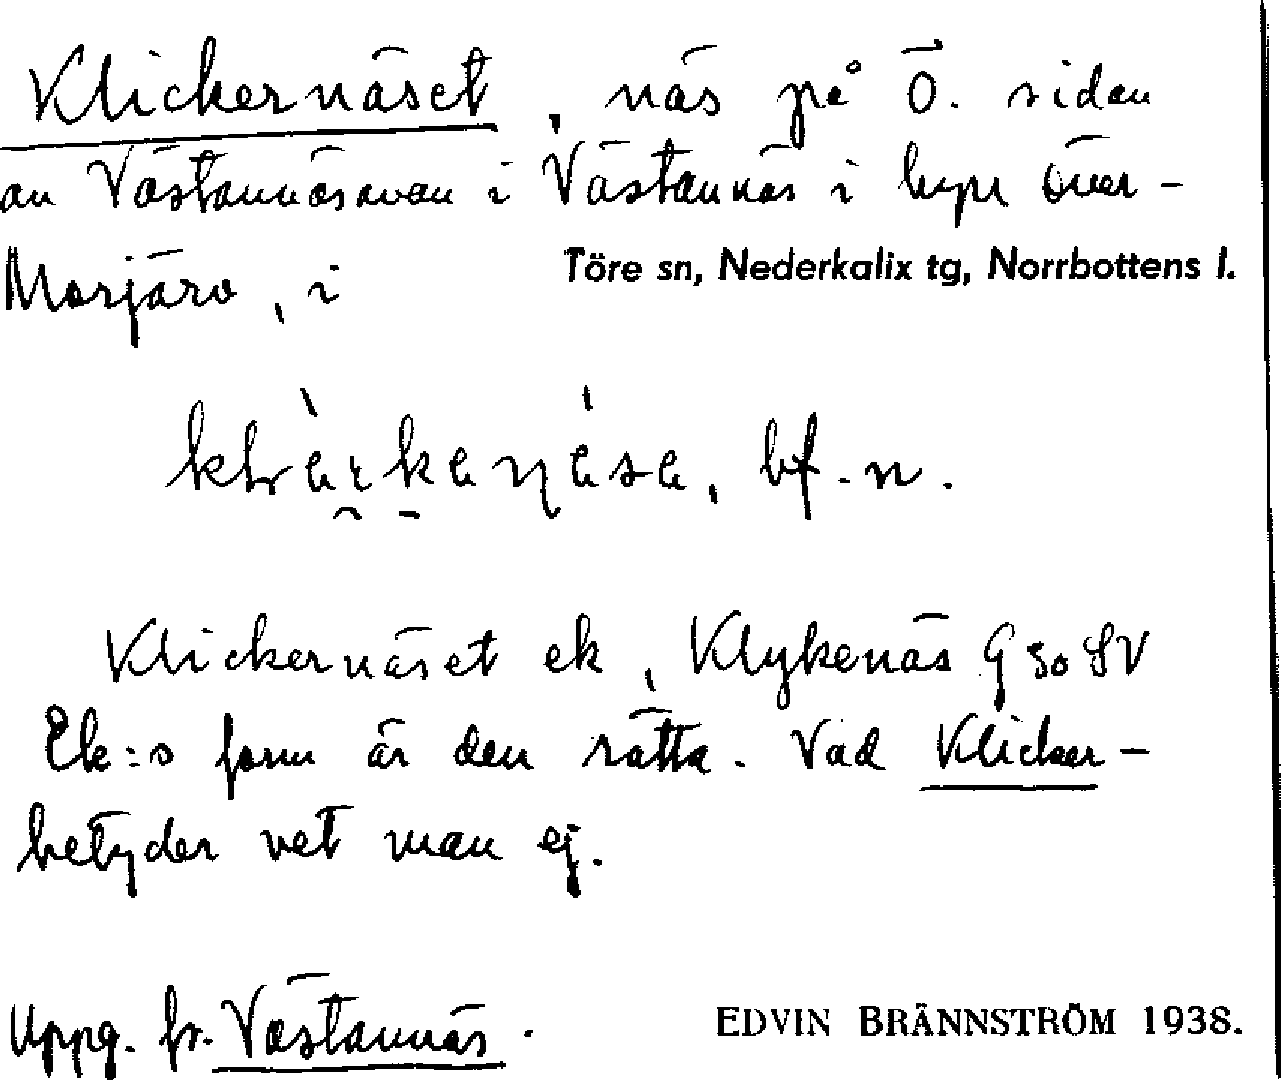 Klickernäset, näs på Ö. sidan
av Västannäsavan i Västannäs i byn Över-
Morjärv, i Töre sn, Nederkalix tg, Norrbottens l.
bf. n.
Klickernäset ek, Klykenäs G 30 SV
Ek:s form är den rätta. Vad Klicker-
betyder vet man ej.
Uppg. fr. Västannäs. EDVIN BRÄNNSTRÖM 1938.